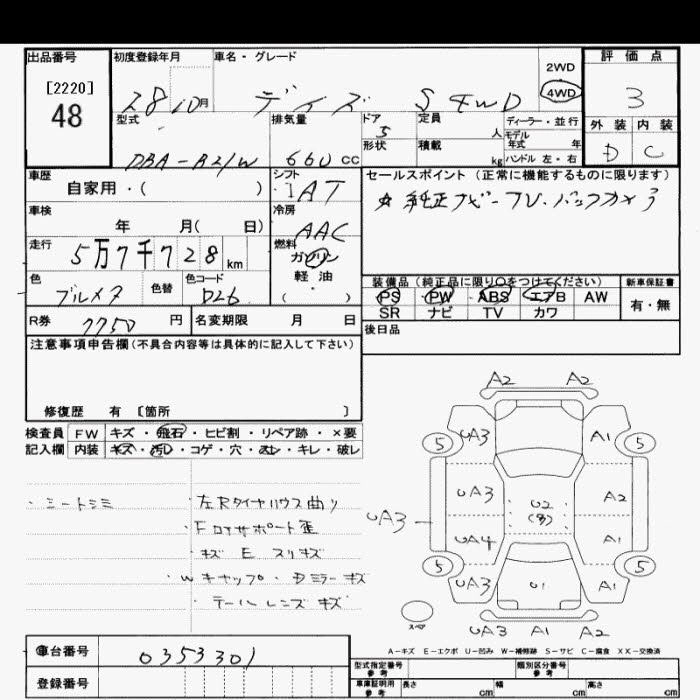 出品番号 初度登録年月 車名・グレード 評価点
[2220] 2WD
48 28 10月 デイズ S 4WD 4WD 3
型式 排気量 ドア 定員 ディーラー・並行 外装 内装
5 人 モデル年式 年
DBA-B21W 660cc 形状 積載 kg ハンドル 左・右 D C
車歴 シフト セールスポイント (正常に機能するものに限ります)
自家用・( ) AT ☆純正ナビーTV.バックカメラ
車検 冷房
年 月( 日) AAC
走行 5万7千728km 燃料 ガソリン
軽油
( )
色 ブルメタ 色替 色コード D26
装備品 (純正品に限り○をつけてください) 新車保証書
PS PW ABS エアB AW 有・無
SR ナビ TV カワ
R券 7750円 名変期限 月 日 後日品
注意事項申告欄(不具合内容等は具体的に記入して下さい)
修復歴 有 〔箇所 〕
検査員 FW キズ・飛石・ヒビ割・リペア跡・×要
記入欄 内装 キズ・汚レ・コゲ・穴・スレ・キレ・破レ
・シートシミ ・左Rタイヤハウス曲り
・Fロアサポート歪
・キズ E スリキズ
・Wキャップ・Dミラーキズ
・テールレンズキズ
A2 A2
5 UA3 A1 5
UA3 A2
U2
(多)
UA3
UA4 A1
5 UA3 U1 A1 5
スペア
UA3 A1 A2
A-キズ E-エクボ U-凹み W-補修跡 S-サビ C-腐食 XX-交換済
車台番号 0353301
型式指定番号 参考 類別区分番号 参考
登録番号
車庫証明用 参考 長さ cm 幅 cm 高さ cm